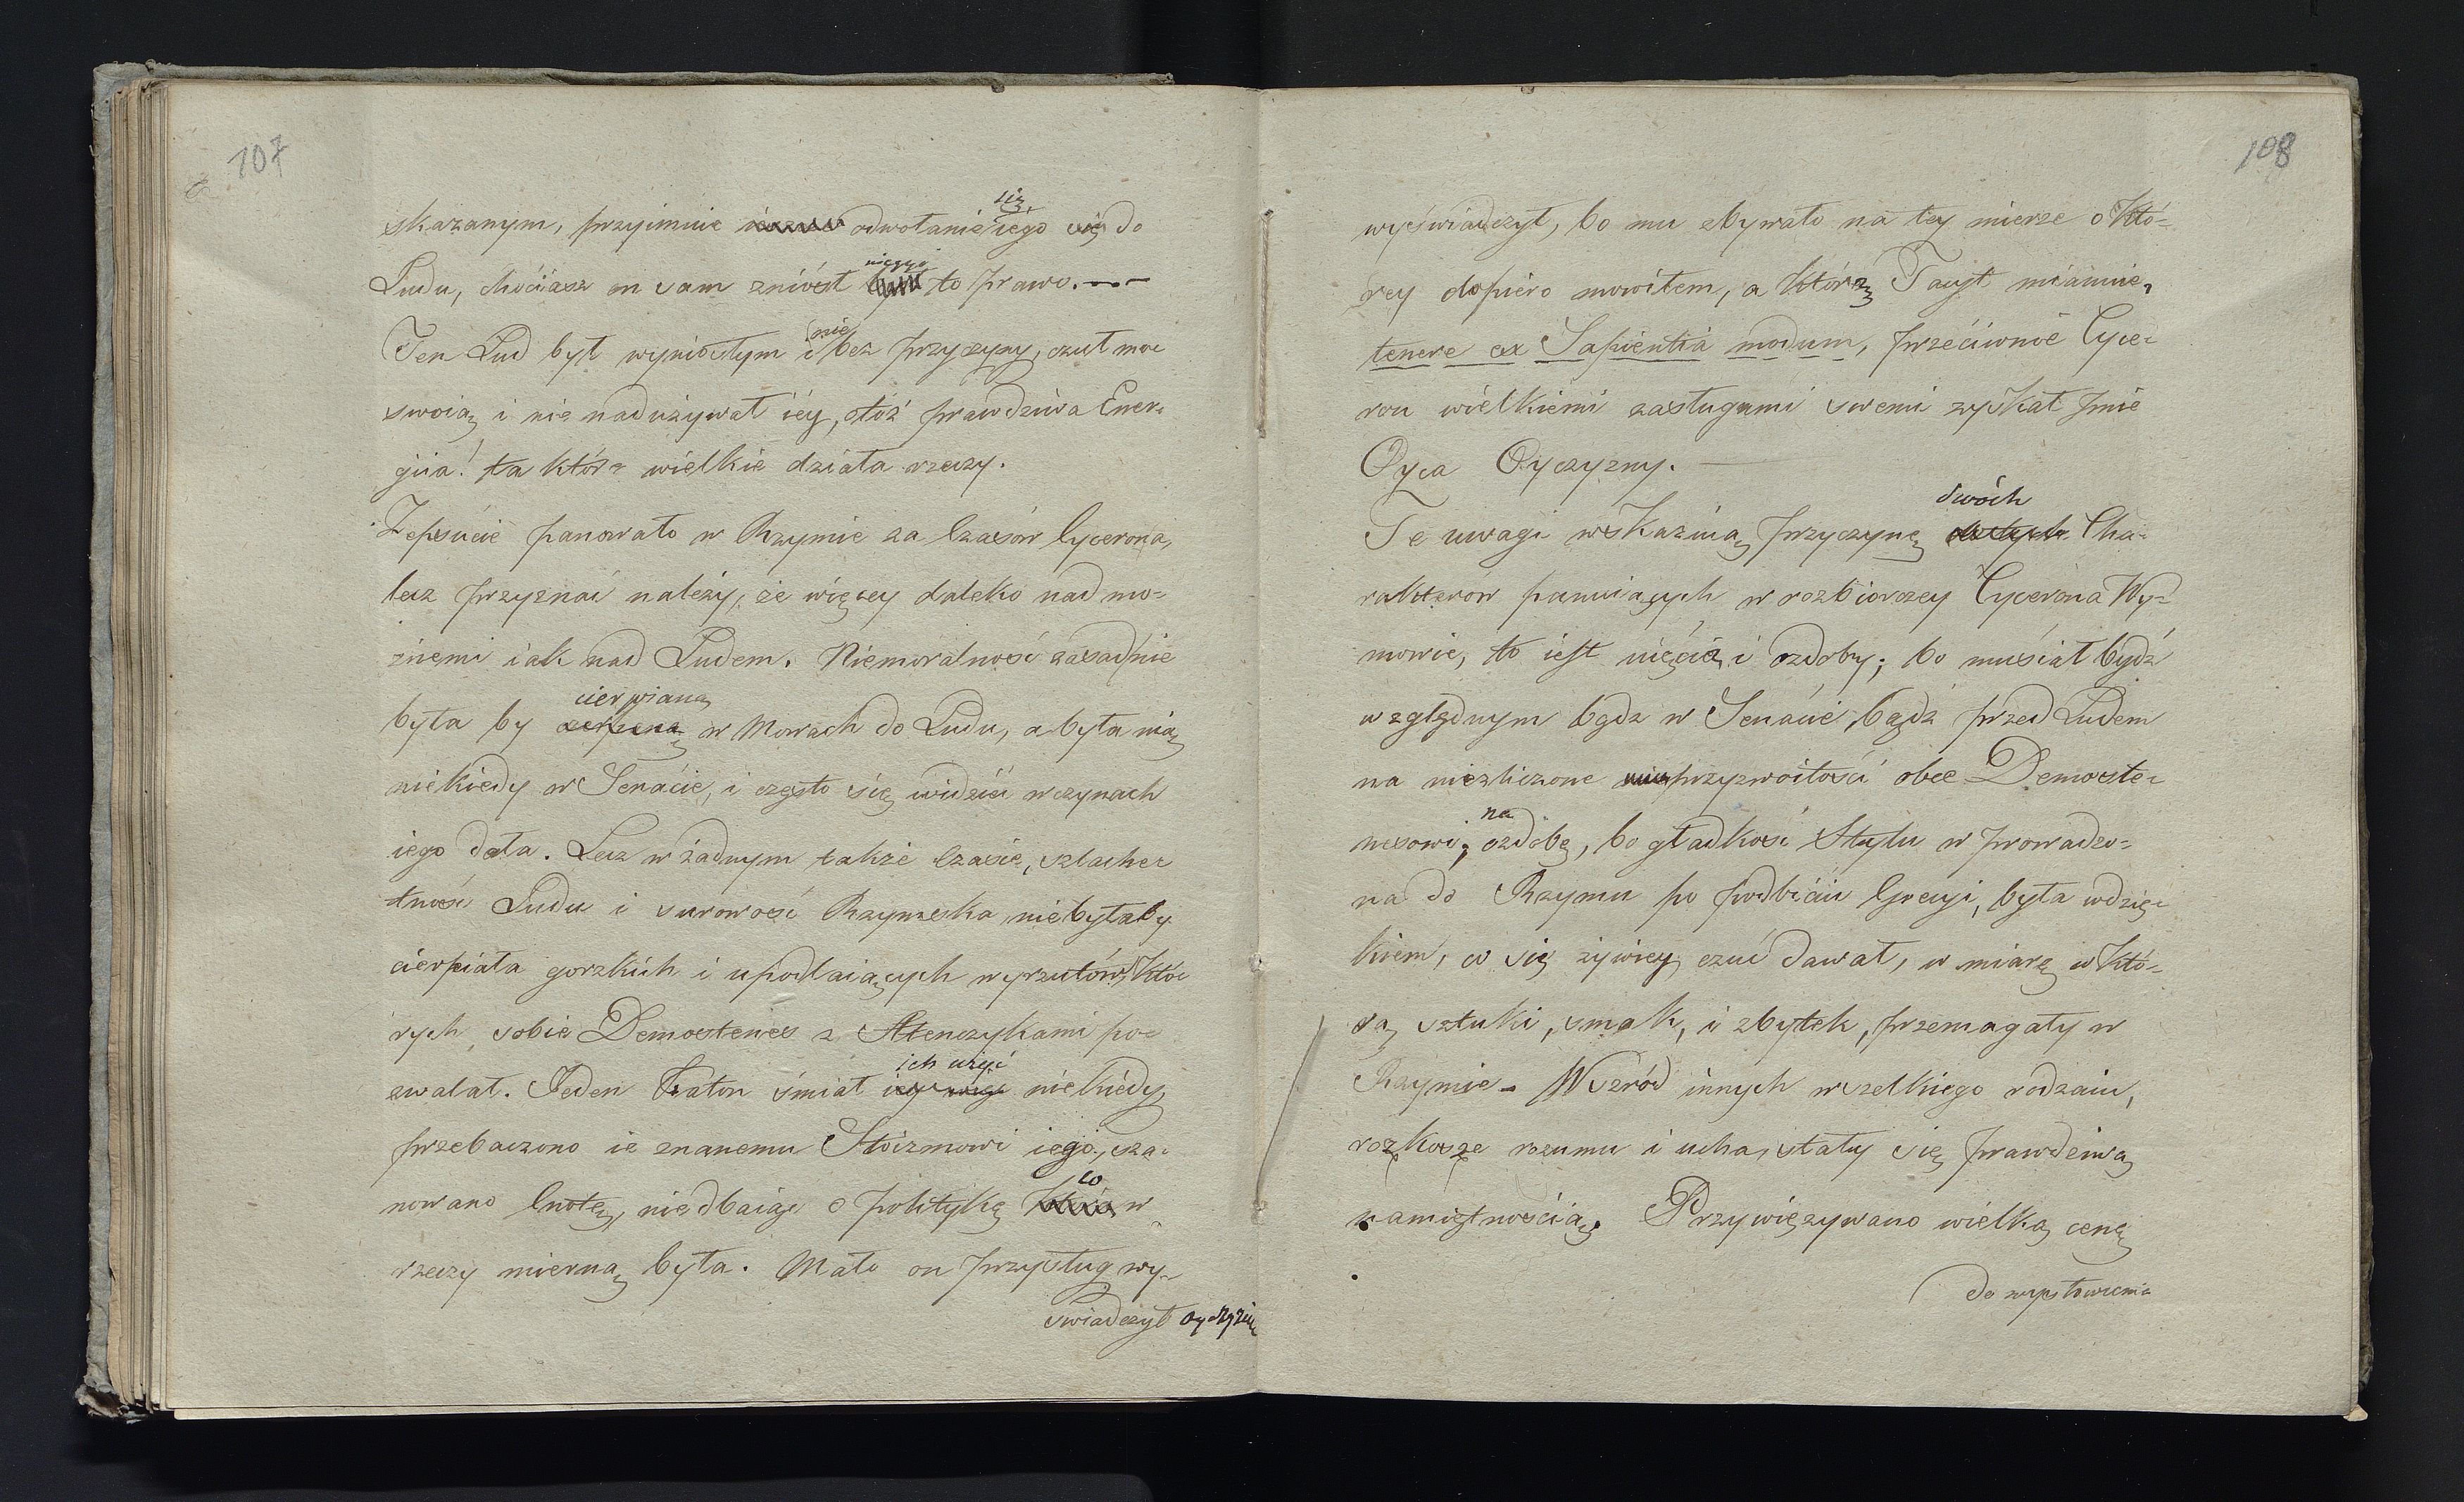 107
skazanym, przyimuie odwołanie się iego się do
Ludu, chociasz on sam zniósł niegyś to prawo. —
Ten Lud był wyniosłym i nie bez przyczyny, czuł moc
swoią i nie nadużywał iey, otóż prawdziwa Ener-
giia! ta która wielkie działa rzeczy.
Zepsucie panowało w Rzymie za Czasów Cycerona,
lecz przyznać należy, że więcey daleko nad mo-
żnemi iak nad Ludem. Niemoralność zasadnie
była by cierpianą w Mowach do Ludu, a była nią
niekiedy w Senacie, i często się widzieć w czynach
iego dała. Lecz w żadnym także Czasie, szlachet
tność Ludu i surowość Rzymska niebyłaby
cierpiała gorzkich i upodlaiących wyrzutów, któ-
rych sobie Demostenes z Atenczykami po-
zwalał. Jeden Katon śmiał ich użyć niekiedy,
przebaczono ie znanemu Stoizmowi iego, sza-
nowano Cnotę, niedbaiąc o politykę co w
rzeczy mierną była. Mało on przysług wy-
świadczył oyczyźnie
108
wyświadczył, bo mu zbywało na tey mierze o któ-
rey dopiero mowiłem, a którą Tacyt mianuie,
tenere ex Sapientia modum, przeciwnie Cyce-
ron wielkiemi zasługami swemi zyskał Jmie
Oyca Oyczyzny. —
Te uwagi wskazuią przyczynę dwóch Cha-
rakterów panuiących w rozbiorczey Cycerona Wy-
mowie, to iest uięcia i ozdoby; bo musiał bydź
względnym bądź w Senacie bądź przed Ludem
na niezliczone przyzwoitości obce Demoste-
nesowi; na ozdobę, bo gładkość Stylu wprowadzo-
na do Rzymu po podbiciu Grecyi, była wdzię-
kiem, co się żywiey czuć dawał, w miarę w któ-
rą sztuki, smak, i zbytek, przemagały w
Rzymie - Wszród innych wszelkiego rodzaiu,
rozkosze rozumu i ucha, stały się prawdziwą
namiętnością. Przywięzywano wielką cenę
do wysłowienia